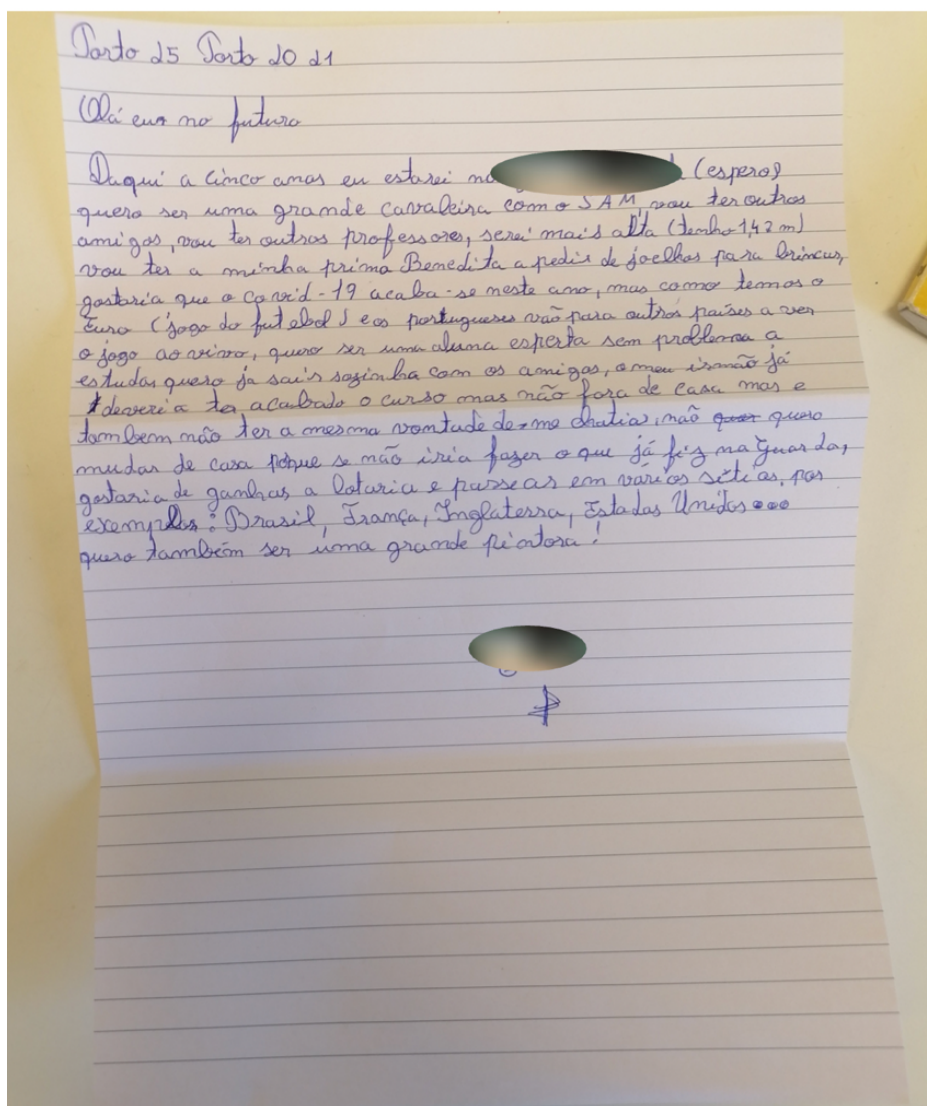 Porto 25 Porto 20 21
Olá eua no futuro
Daqui a cinco anos eu estarei na (espero)
quero ser uma grande cavaleira como o SAM, vou ter outros
amigos, vou ter outros professores, serei mais alta (tenho 1,42 m)
vou ter a minha prima Benedita a pedir de joelhos para brincar,
gostaria que o covid-19 acaba-se neste ano, mas como temos o
Euro (jogo do futebol) e os portugueses vão para outros países a ver
o jogo ao vivo, quero ser uma aluna esperta sem problema a
estudar quero ja sair sozinha com os amigos, o meu irmão já
deveria ter acabado o curso mas não fora de casa mas e
tambem não ter a mesma vontade de-me chatiar, não quer quero
mudar de casa porque se não iria fazer o que já fiz na Guarda,
gostaria de ganhar a lotaria e passear em varios sitios, por
exemplo: Brasil, França, Inglaterra, Estados Unidos...
quero também ser uma grande pintora!